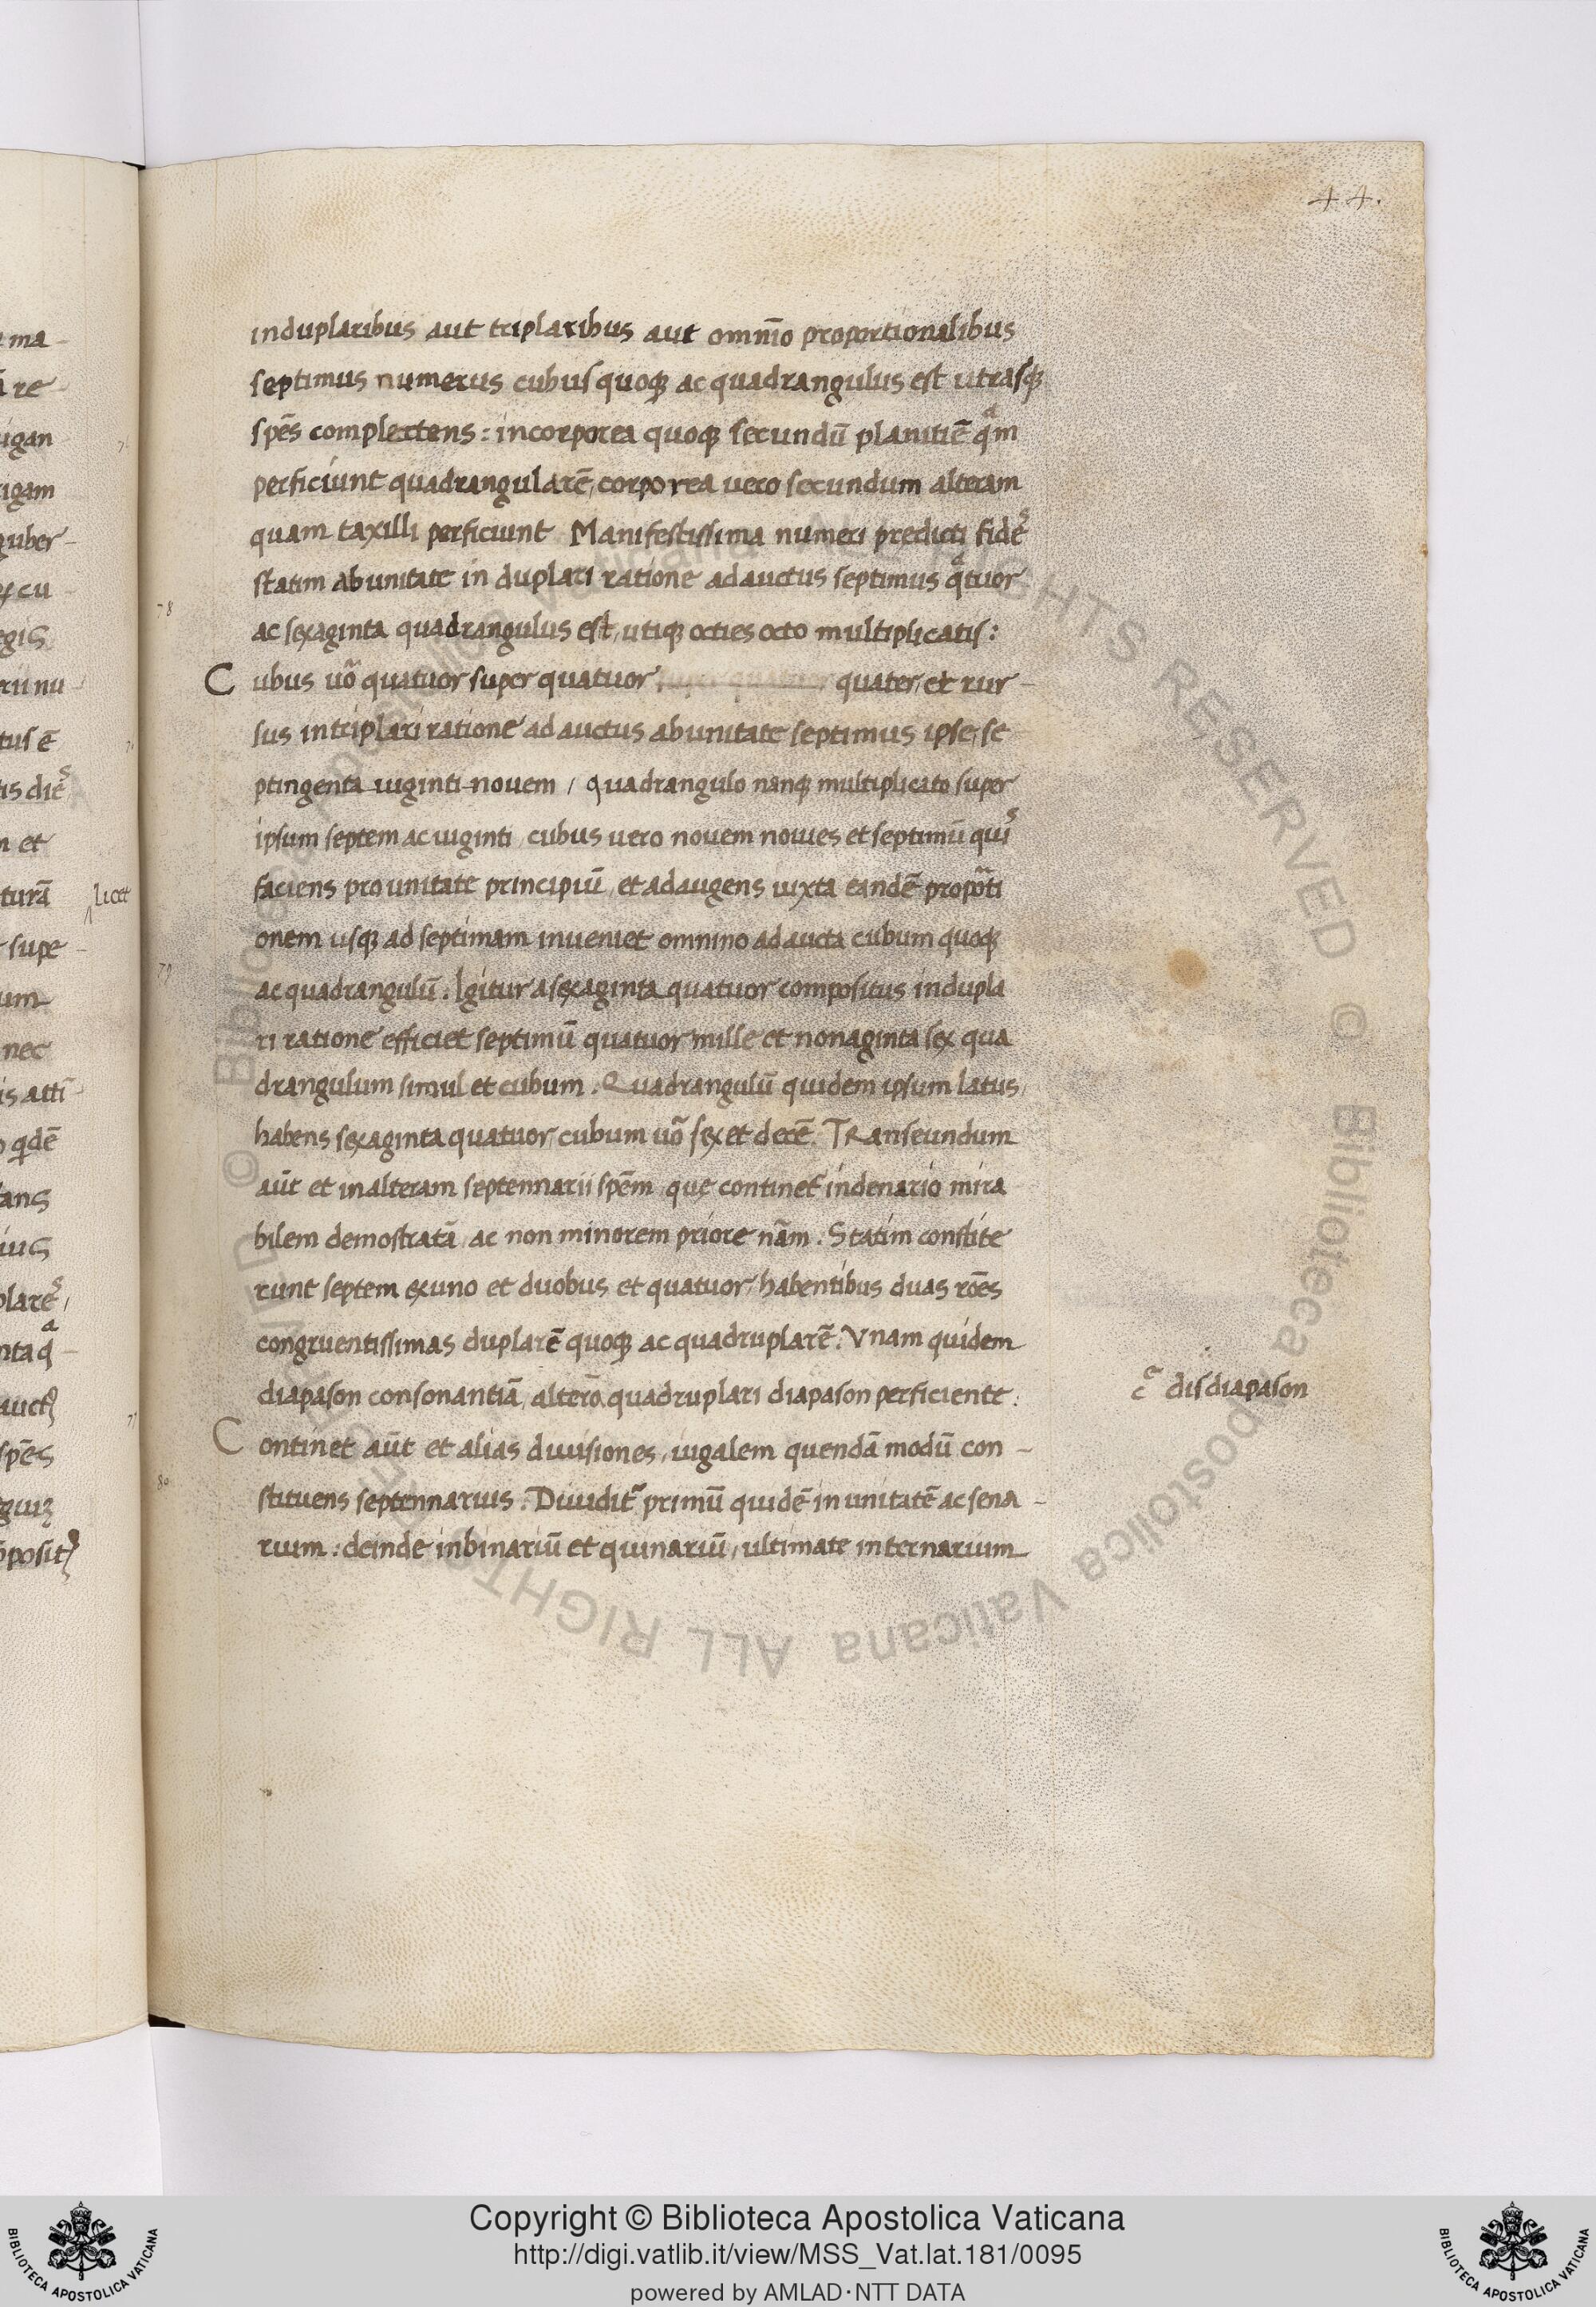 44.
induplaribus aut triplaribus aut omnĩo proportionalibus
septimus numerus cubus quoqꝫ ac quadrangulus est utrasqꝫ
spẽs complectens: incorporea quoqꝫ secundũ planitiẽ qᵃm
perficiunt quadrangularẽ, corporea vero secundum alteram
quam taxilli perficiunt Manifestissima numeri predicti fidẽˢ
statim ab unitate in duplari ratione adauctus septimus qᵃtuor
ac sexaginta quadrangulus est, utiqꝫ octies octo multiplicatis:
Cubus uõ quatuor super quatuor, super quatuor quater, et rur-
sus in triplari ratione adauctus ab unitate septimus ipse, se
ptingenta viginti novem, quadrangulo nanqꝫ multiplicato super
ipsum septem ac viginti, cubus vero novem novies et septimũ quiˢ
faciens pro unitate principiũ, et adaugens iuxta eandẽ propoᵃti
onem usqꝫ ad septimam inveniet omnino adaucta cubum quoqꝫ
ac quadrangulũ. Igitur a sexaginta quatuor compositus in dupla
ri ratione efficiet septimũ quatuor mille et nonaginta sex qua
drangulum simul et cubum. Quadrangulũ quidem ipsum latus,
habens sexaginta quatuor, cubum uõ sex et decẽ. TRanseundum
aũt et in alteram septennarii spẽm, quę continet᷑ in denario mira
bilem demostratã, ac non minorem priore nãm. Statim constite
runt septem ex uno et duobus et quatuor, habentibus duas rões
congruentissimas duplarẽ quoqꝫ ac quadruplarẽ. Vnam quidem
diapason consonantiã, alterõ quadruplari diapason perficiente.
cᵃ disdiapason
Continet aũt et alias divisiones, iugalem quendã modũ con-
stituens septennarius. Dividit᷑ primũ quidẽ in unitatẽ ac sena-
rium: deinde in binariũ et quinariũ, ultimate in ternarium
78
79
80
Licet
Copyright © Biblioteca Apostolica Vaticana
http://digi.vatlib.it/view/MSS_Vat.lat.181/0095
powered by AMLAD·NTT DATA
BIBLIOTECA APOSTOLICA VATICANA
BIBLIOTECA APOSTOLICA VATICANA
© Biblioteca Apostolica Vaticana ALL RIGHTS RESERVED
© Biblioteca Apostolica Vaticana ALL RIGHTS RESERVED